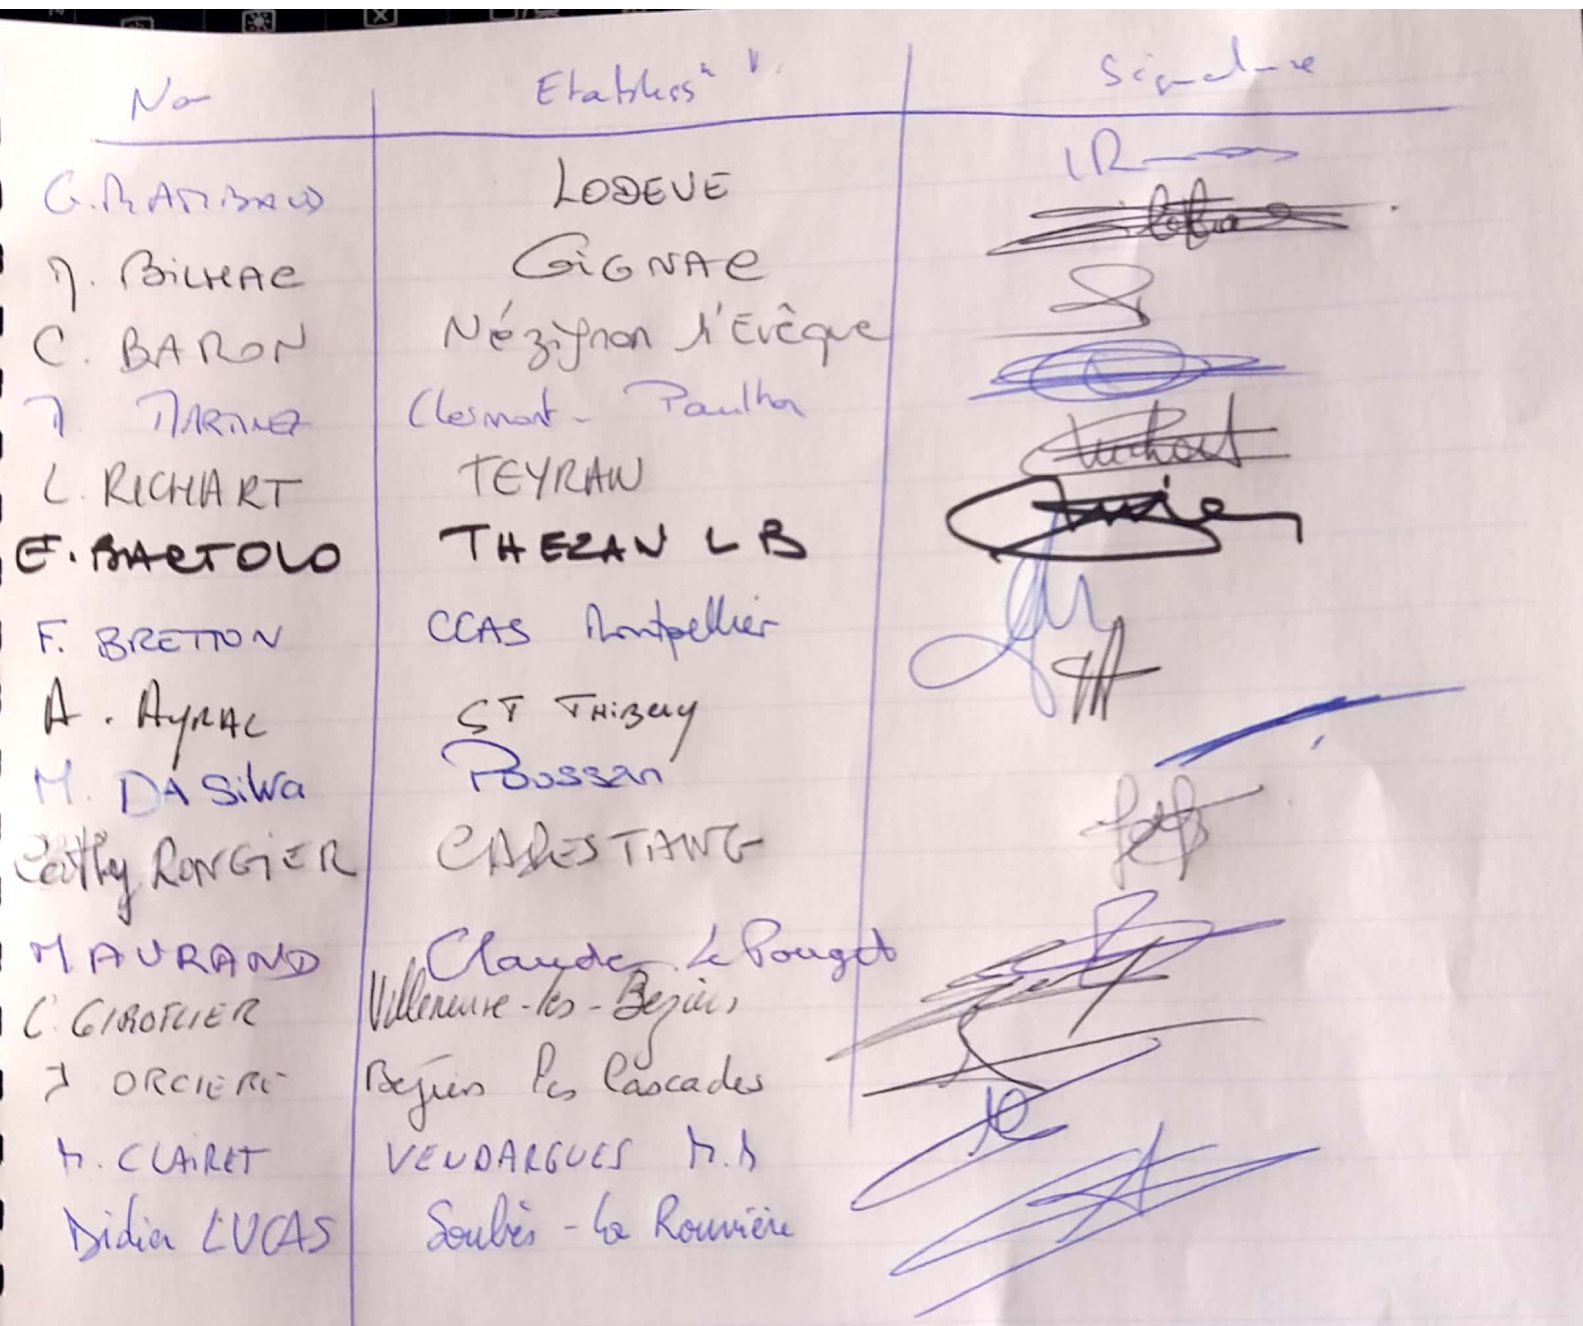 Nom Etabliss^t Signature
G. RAMBAUD LODEVE
M. BILHAC GIGNAC
C. BARON Nézignan l'Evêque
M. MARTINEZ Clermont - Paulhan
L. RICHART TEYRAN
E. BARTOLO THEZAN L B
F. BRETTON CCAS Montpellier
A. AYRAL ST THIBERY
M. DA SilVa Poussan
Cathy RONGIER CAPESTANG
M AURAND Claude Le Pouget
C. GIROFLIER Villeneuve-les-Beziers
J ORCIERE Beziers Les Cascades
M. CLAIRET VENDARGUES M.M
Didier LUCAS Soubès - La Rouvière